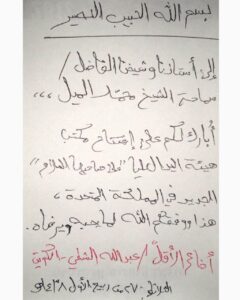 بسم الله الحبيب النصير
إلى أستاذنا وشيخنا الفاضل /
سماحة الشيخ محمد الميل ،،،
أبارك لكم على إفتتاح مكتب
هيئة اليد العليا "على صاحبها السلام"
الجديد في المملكة المتحدة ،
هذا ووفقكم الله لما يحبه ويرضاه.
أخاكم الأقل / عبدالله الشطي - الكويت
٢٧ من ربيع الأول ١٤٣٨